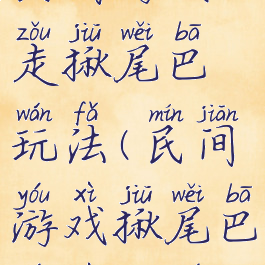 zǒu jiū wěi bā
走揪尾巴
wán fǎ mín jiān
玩法(民间
yóu xì jiū wěi bā
游戏揪尾巴